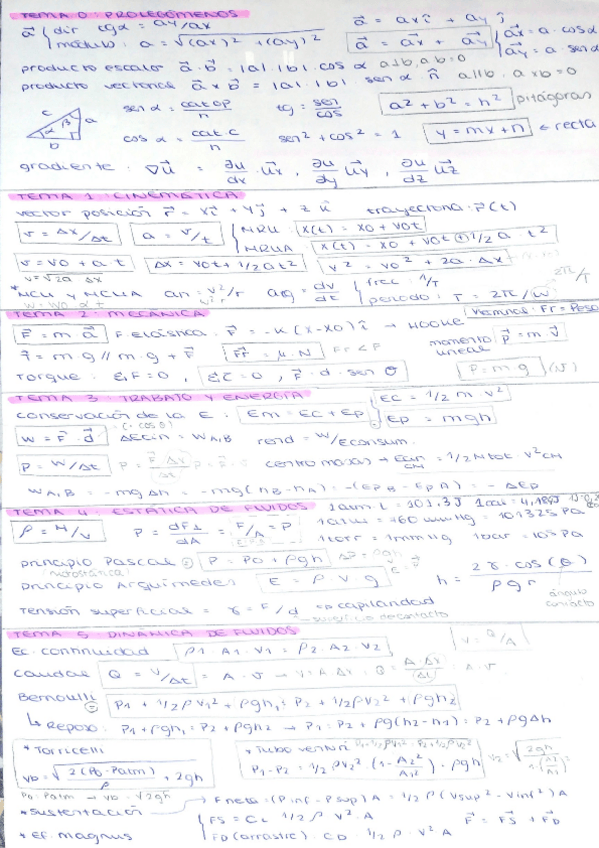 TEMA 0: PROLEGÓMENOS
a⃗ { dir tgα = ay/ax
módulo: a = √(ax)² + (ay)²
a⃗ = ax î + ay ĵ
a⃗ = a⃗x + a⃗y { a⃗x = a · cosα
a⃗y = a · senα
producto escalar a⃗ · b⃗ = |a| · |b| · cos α a⊥b, a·b = 0
producto vectorial a⃗ x b⃗ = |a| · |b| · sen α · n̂ a∥b · axb = 0
sen α = cat op / h
tg = sen / cos
a² + b² = h² pitágoras
c α β a b
cos α = cat.c / h
sen² + cos² = 1
y = mx + n ← recta
gradiente: ∇u⃗ = ∂u/dx · u⃗x , ∂u/dy u⃗y , ∂u/dz u⃗z
TEMA 1: CINEMÁTICA
vector posición r⃗ = xî + yĵ + z trayectoria: r⃗(t)
v = Δx/Δt a = v/t { MRU: x(t) = x0 + v0t
MRUA x(t) = x0 + v0t + 1/2 a · t²
v = v0 + a t Δx = v0t + 1/2 at² v² = v0² + 2a · Δx
v = √2a Δx
* MCU y MCUA an = v²/r atg = dv/dt { frec: 1/T
periodo: T = 2π/w
2π/T
TEMA 2: MECÁNICA
F⃗ = m · a⃗ F elástica: F⃗ = -K(x-x0) î → HOOKE
Fr = Peso
= m · g // m · g + F⃗ Fr = μ · N Fr < P momento lineal p⃗ = m · v⃗
Torque: ΣF = 0, Στ = 0, F⃗ · d · sen θ P = m · g (N)
TEMA 3: TRABAJO Y ENERGÍA
EC = 1/2 m · v²
conservación de la E: Em = Ec + Ep
Ep = mgh
(· cos θ)
W = F⃗ · d⃗ ΔEcin = WA,B rend = W/Econsum.
P = W/Δt centro masas → Ecin CM = 1/2 Mtot · v²CM
WA,B = -mgΔh = -mg(hB - hA) = -(EpB - EpA) = -ΔEp
TEMA 4: ESTÁTICA DE FLUIDOS 1 atm·L = 101,3J
ρ = M/V P = dF⊥/dA = F/A = P
1 atm = 760 mmHg = 101325 Pa
1 torr = 1 mmHg 1 bar = 10⁵ Pa
principio Pascal = P = P0 + ρgh
hidrostática
principio Arquímedes E = ρ · V · g h = 2γ · cos(θ) / ρgr
ángulo contacto
Tensión superficial = γ = F/d ⇒ capilaridad
TEMA 5: DINÁMICA DE FLUIDOS
v = Q/A
EC. continuidad ρ1 · A1 · V1 = ρ2 · A2 · V2
caudal Q = V/Δt = A · v
Bernoulli = P1 + 1/2 ρv1² + ρgh1 = P2 + 1/2 ρv2² + ρgh2
↳ Reposo: P1 + ρgh1 = P2 + ρgh2 → P1 = P2 + ρg(h2-h1) = P2 + ρgΔh
* Torricelli
vb = √2(P0 - Patm)/ρ + 2gh
* Tubo venturi
P1 - P2 = 1/2 ρv2² (1 - A2²/A1²) · ρgh
P0 = Patm → vb = √2gh
* sustentación → F neta: (Pinf - Psup) A = 1/2 ρ (Vsup² - Vinf²) A
{ FS = CL 1/2 ρ V² A F⃗ = F⃗S + F⃗D
* Ef. Magnus FD (arrastre): CD · 1/2 ρ · V² A